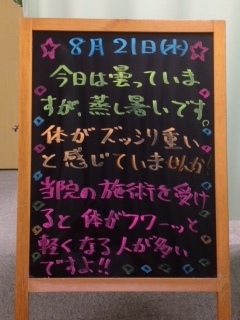 8月21日(水)
今日は曇っていま
すが、蒸し暑いです。
体がズッシリ重い
と感じていませんか!
当院の施術を受け
ると体がフワーッと
軽くなる人が多い
ですよ!!